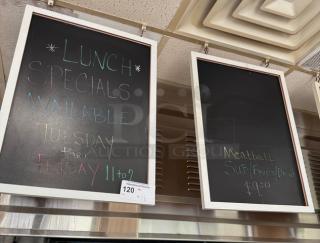 *LUNCH*
SPECIALS
AVAILABLE
TUESDAY
thru
FRIDAY 11 to 2
120
Meatball
PCI
AUCTION GROUP